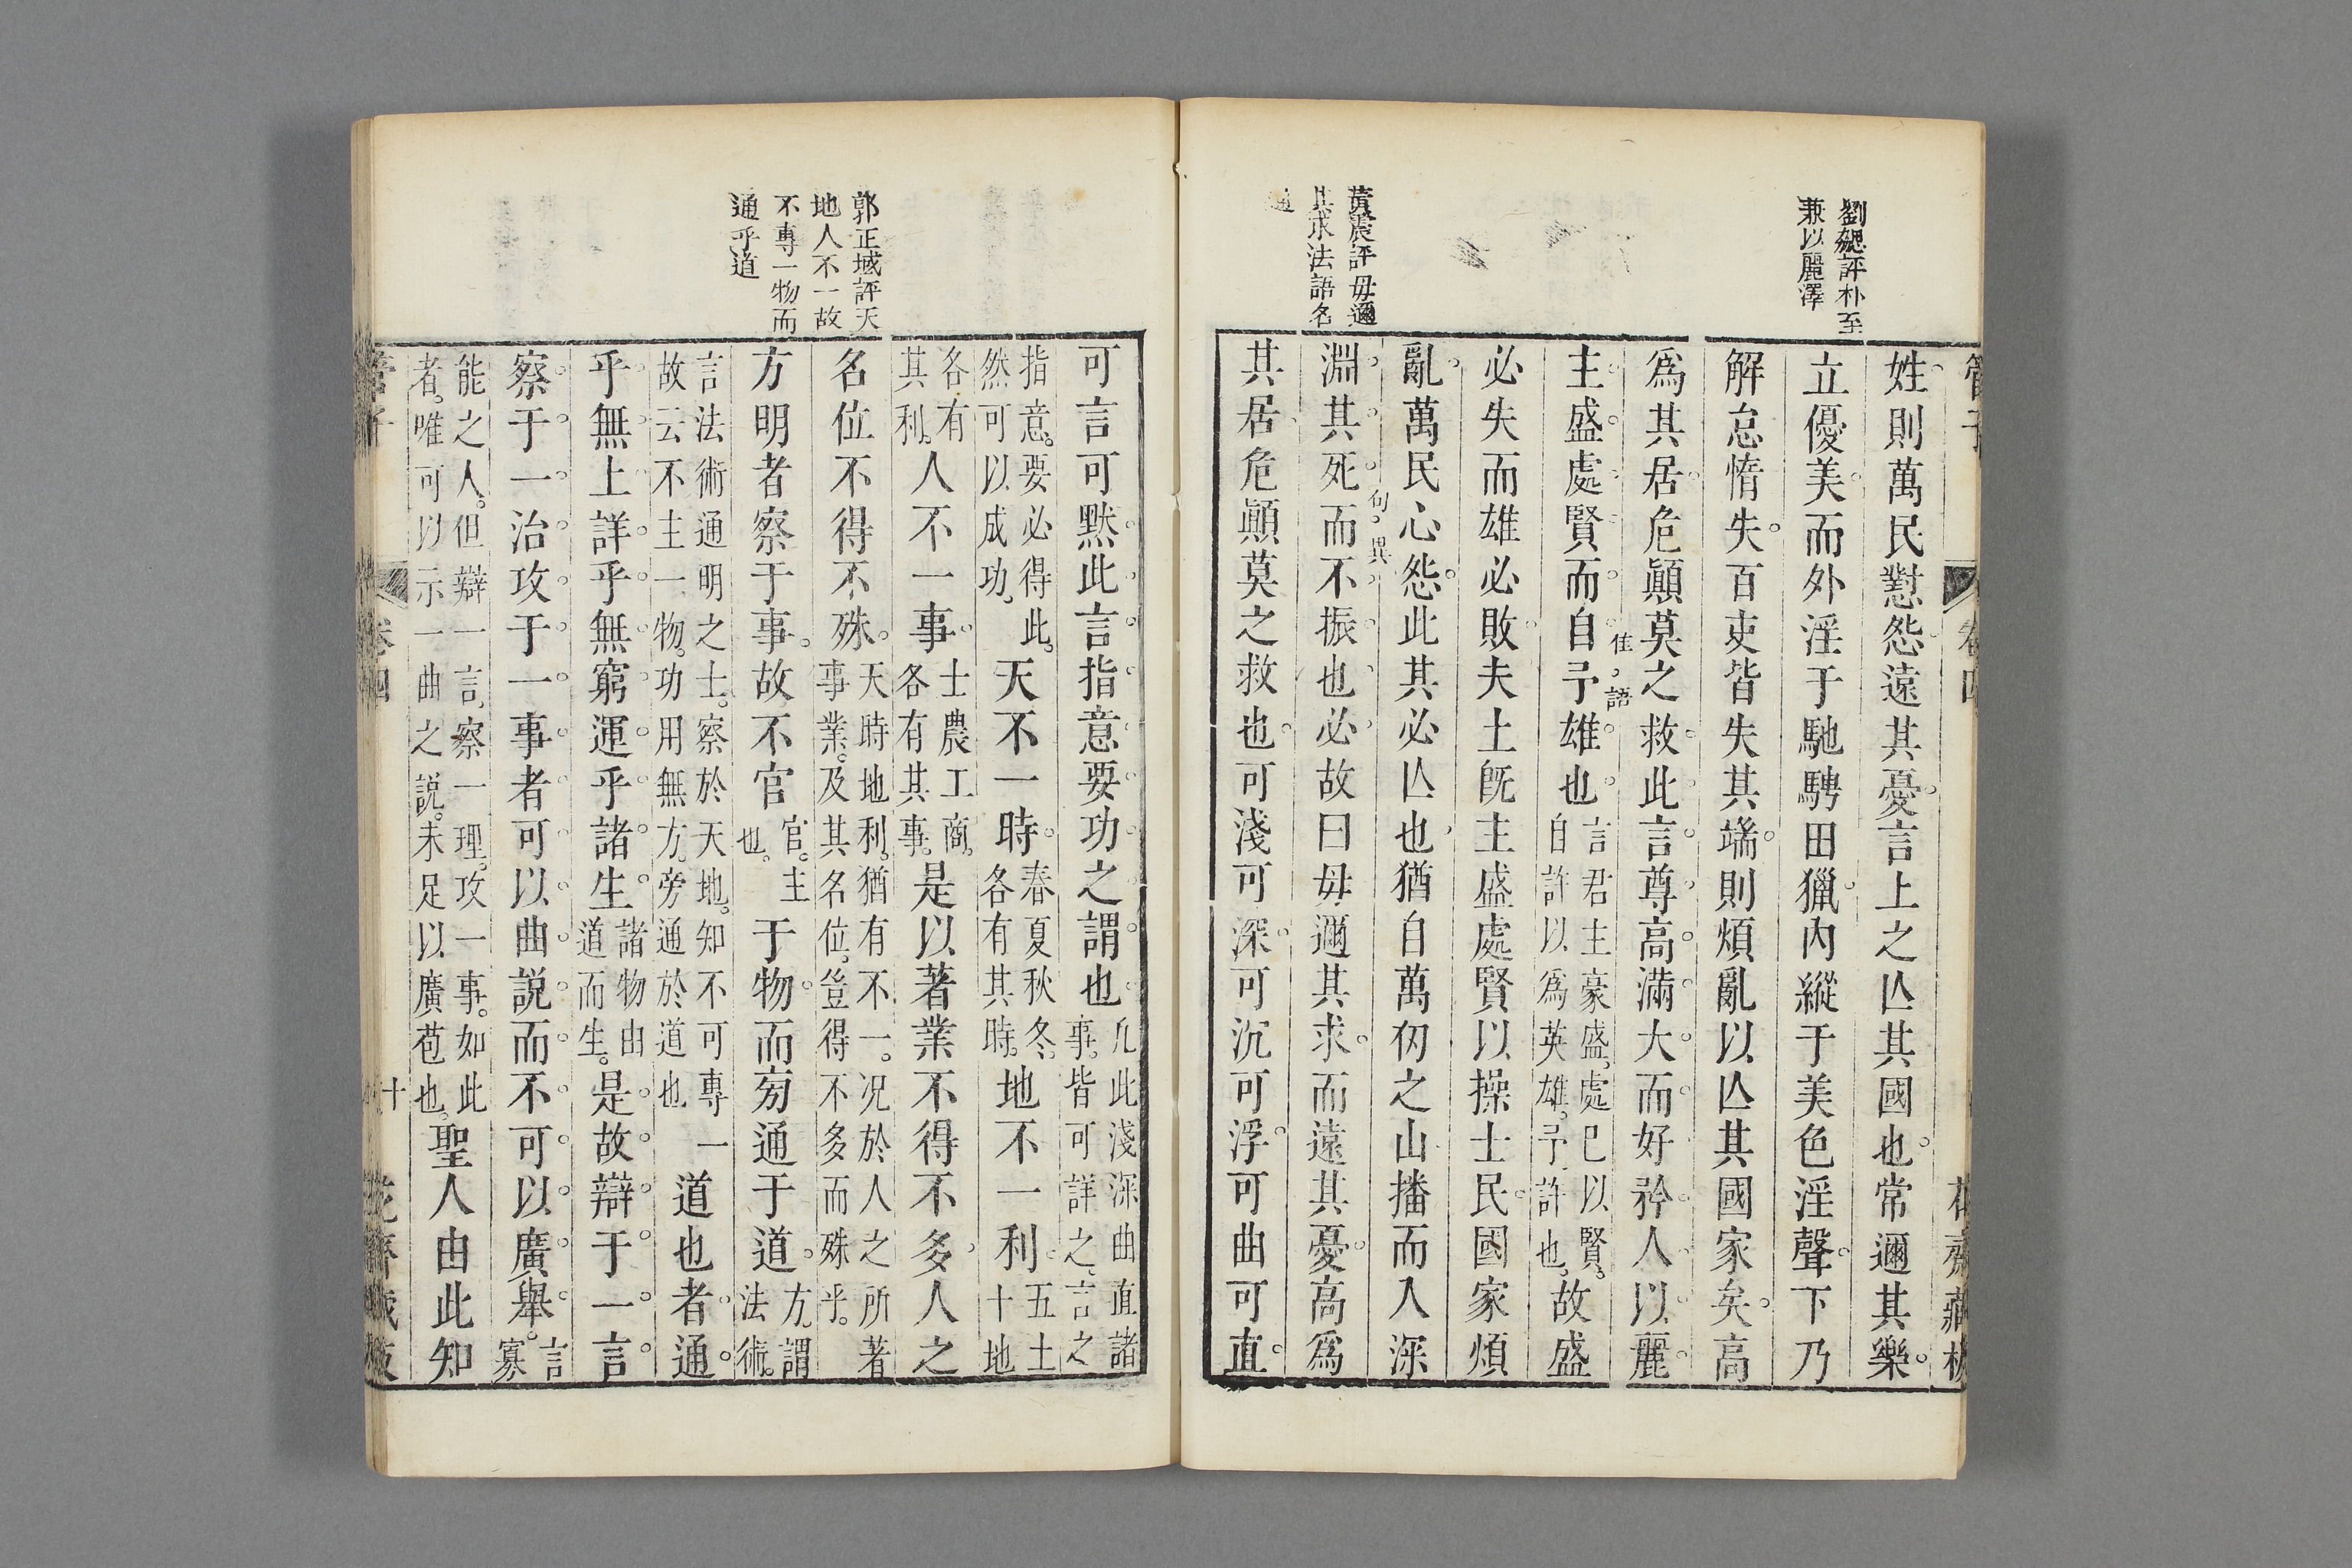 劉勰評朴至
兼以麗澤
黃震評毋邇
其求法語名
通
管子
卷四
花齋藏板
姓則萬民懟怨遠其憂言上之亾其國也常邇其樂
立優美而外淫于馳騁田獵内縱于美色淫聲下乃
解怠惰失百吏皆失其端則煩亂以亾其國家矣高
爲其居危顚莫之救此言尊高滿大而好矜人以麗
佳語
主盛處賢而自予雄也言君主豪盛處已以賢自許以爲英雄予許也故盛
必失而雄必敗夫土旣主盛處賢以操士民國家煩
亂萬民心怨此其必亾也猶自萬仞之山播而入深
句異
淵其死而不振也必故曰毋邇其求而遠其憂高爲
其居危顚莫之救也可淺可深可沉可浮可曲可直
郭正域評天
地人不一故
不專一物而
通乎道
可言可默此言指意要功之謂也凢此淺深曲直諸事皆可詳之言之
指意要必得此然可以成功天不一時春夏秋冬各有其時地不一利五土十地
各有其利人不一事士農工商各有其事是以著業不得不多人之
名位不得不殊天時地利猶有不一况於人之所著事業及其名位豈得不多而殊乎
方明者察于事故不官官主也于物而旁通于道方謂法術
言法術通明之士察於天地知不可專一故云不主一物功用無方旁通於道也道也者通
乎無上詳乎無窮運乎諸生諸物由道而生是故辯于一言
察于一治攻于一事者可以曲説而不可以廣舉言寡
能之人但辯一言察一理攻一事如此者唯可以示一曲之説未足以廣苞也聖人由此知
管子
卷四
十
花齋藏板